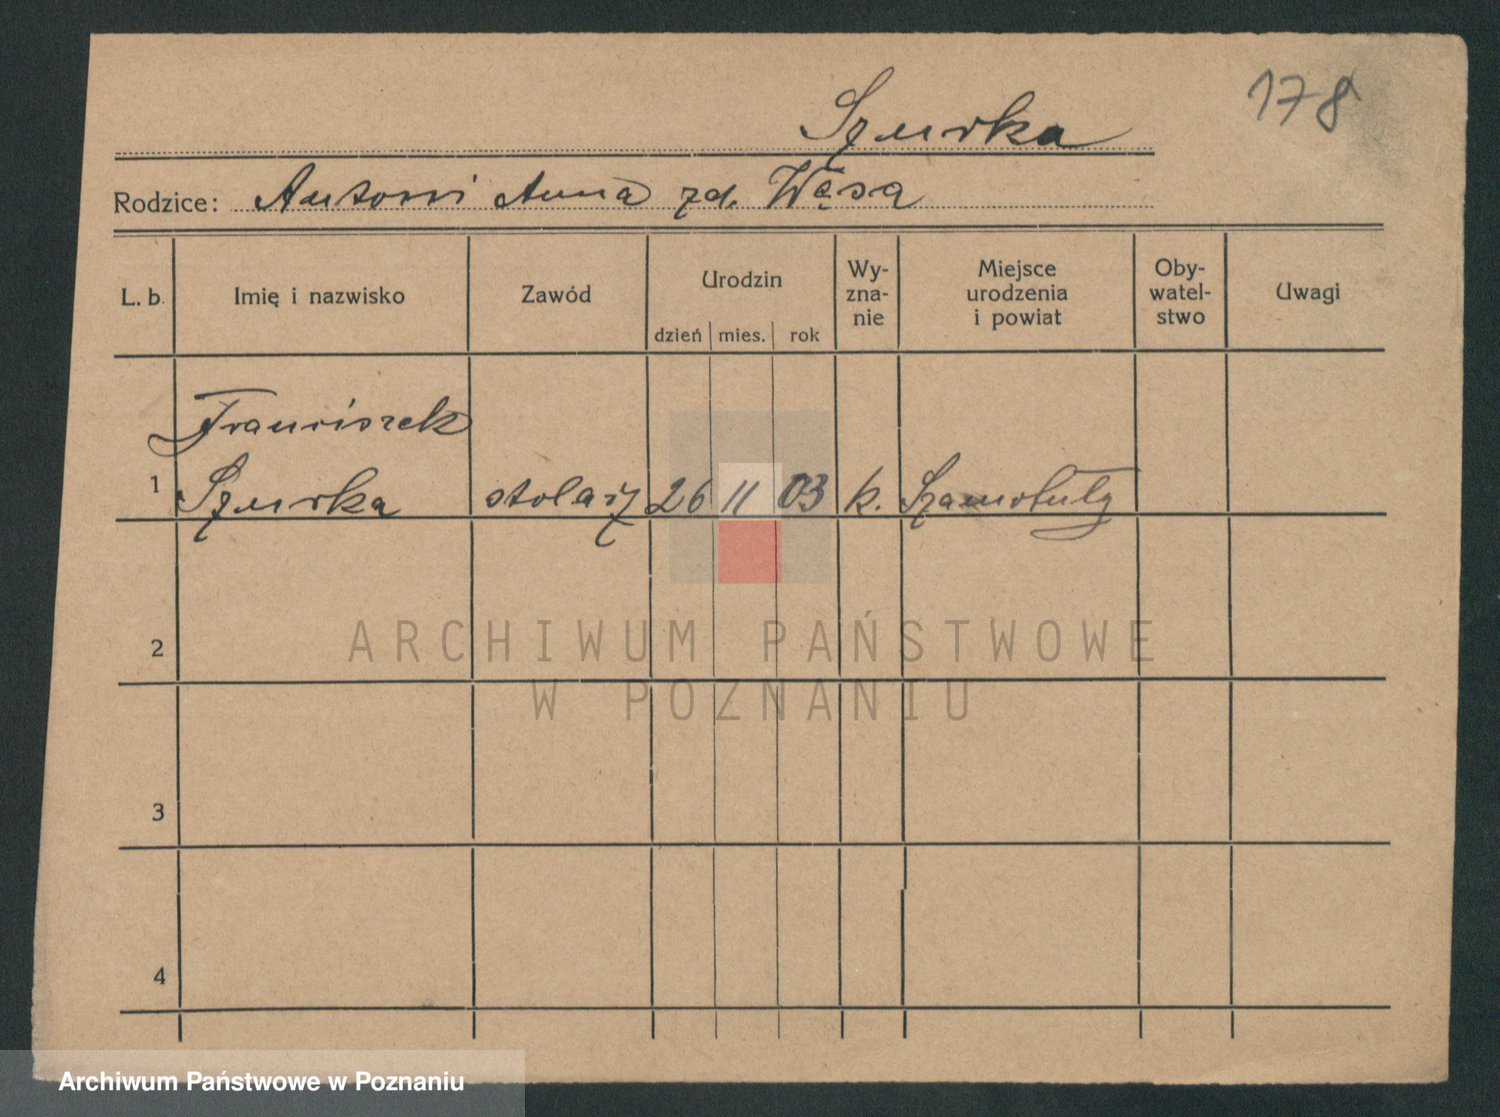 178
Szurka
Rodzice: Antoni Anna zd. Węsa
L. b.
Imię i nazwisko
Zawód
Urodzin
dzień mies. rok
Wy-
zna-
nie
Miejsce
urodzenia
i powiat
Oby-
watel-
stwo
Uwagi
Franciszek
1 Szurka stolarz 26 11 03 k. Szamotuły
2
ARCHIWUM PAŃSTWOWE
W POZNANIU
3
4
Archiwum Państwowe w Poznaniu